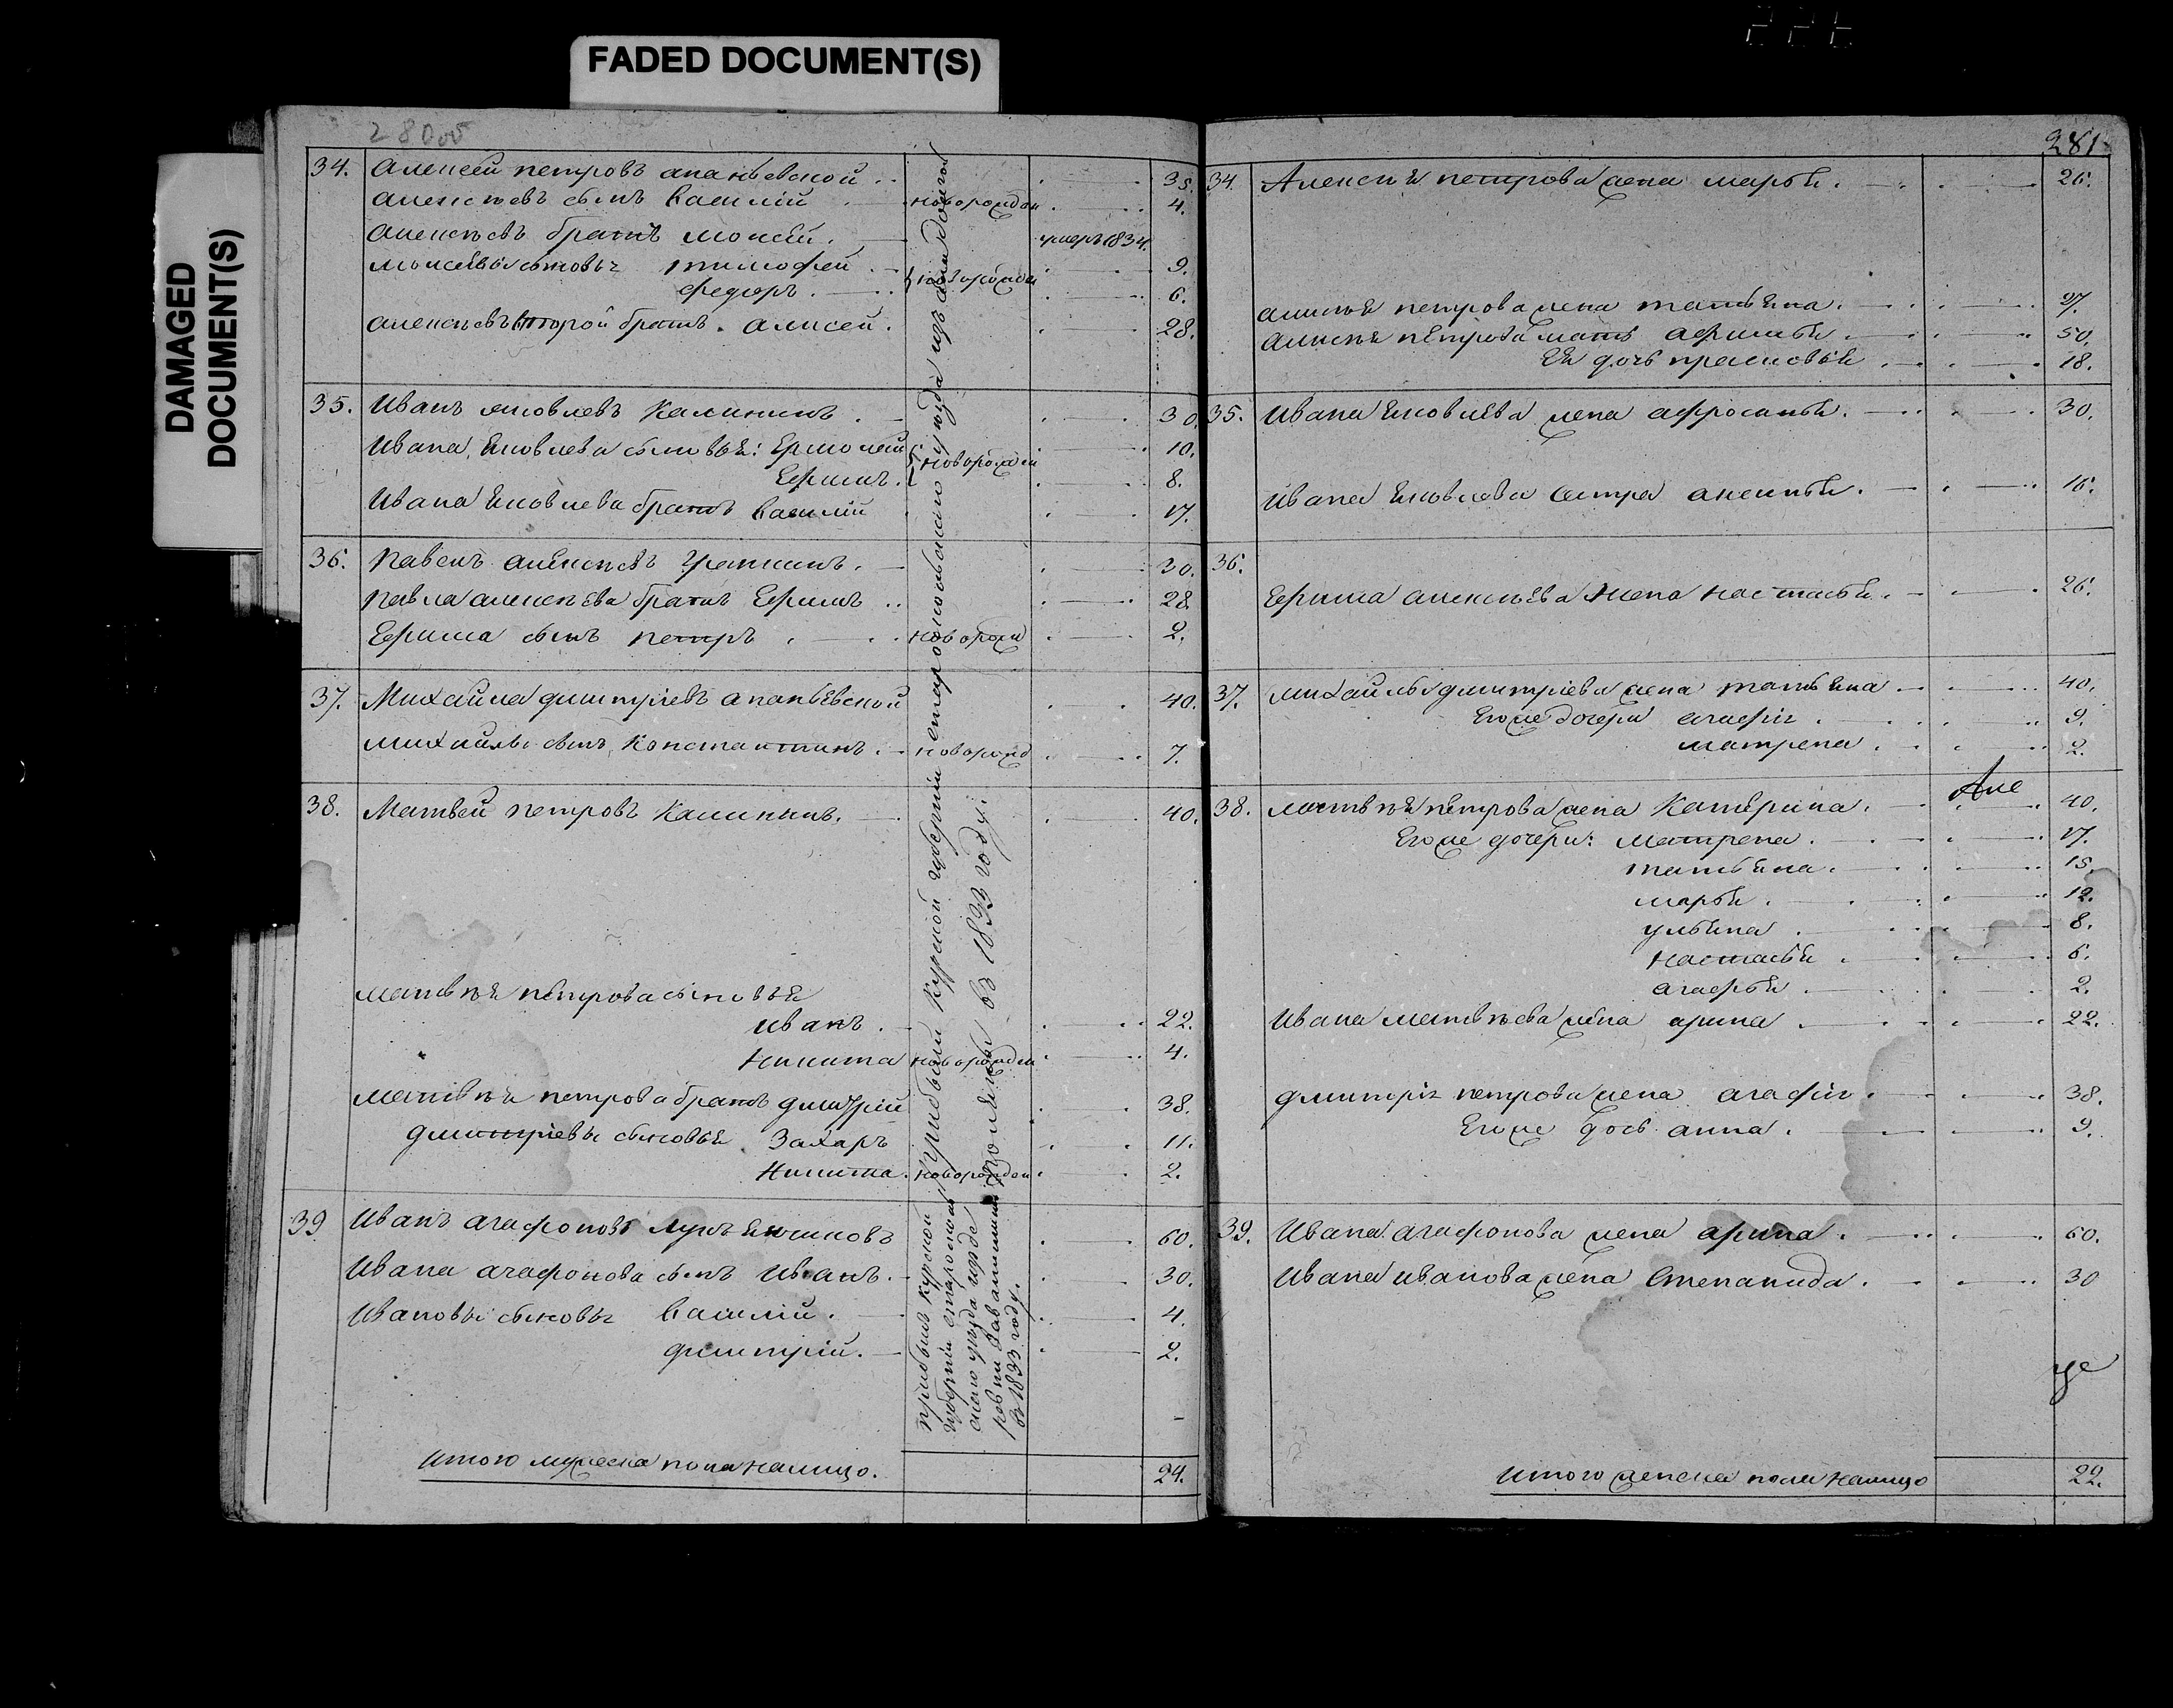 FADED DOCUMENT(S)
DAMAGED
DOCUMENT(S)
280об
34. Алексей петровъ апаньевской 35.
алексѣевъ сынъ василій новорожден 4.
алексѣевъ братъ моисей. умеръ 1834.
моисеевы сыновьѧ тимофей новорожден 9.
федоръ. 6.
алексѣевъ второй братъ. алисей. 28.
35. Иванъ яковлевъ Калининъ. 30.
Ивана яковлева сыновья: Ермолай новорожден 10.
Ефимъ. 8.
Ивана яковлева братъ василій 17.
36. Павелъ алексѣевъ 30.
павла алексѣева братъ Ефимъ 28.
Ефима сынъ петръ новорож 2.
37. Михайла дмитріевъ апаньевской 40.
михайлы сынъ Константинъ. новорожд 7.
38. Матвей петровъ Калининъ. 40.
матвѣя петрова сыновья
иванъ. 22.
Никита новорожден 4.
матвѣя петрова братъ дмитрій 38.
дмитріевы сыновья Захаръ 11.
Никита. новорожден 2.
прибыли Курской губерніи старооскольскаго уезда изъ
въ 1833 году.
39 Иванъ агафоновъ 60.
Ивана агафонова сынъ Иванъ. 30.
Ивановы сыновьѧ василій. 4.
дмитрій. 2.
прибыли Курской
губерніи старооскол
скаго уезда изъ де
ревни
въ 1833 году.
итого мужеска пола налицо. 24.
281.
34. Алексѣя петрова жена марья. 26.
алисѣя петрова жена татьяна. 27.
алисѣя петрова мать афимья 50.
Ея дочь прасковья 18.
35. Ивана яковлева жена афросинья. 30.
Ивана яковлева сестра аксинья. 16.
36.
Ефима алексѣева жена настасья. 26.
37. михайлы дмитріева жена татьяна 40.
Егоже дочери агафія 9.
матрена. 2.
38. матвѣя петрова жена Катерина. 40.
Егоже дочери: матрена. 17.
татьяна. 15.
марья. 12.
ульяна. 8.
настасья 6.
агафья 2.
Ивана матвѣева жена арина 22.
дмитрія петрова жена агафія. 38.
Егоже дочь анна. 9.
39. Ивана агафонова жена арина. 60.
Ивана иванова жена степанида. 30
итого женска пола налицо 22.